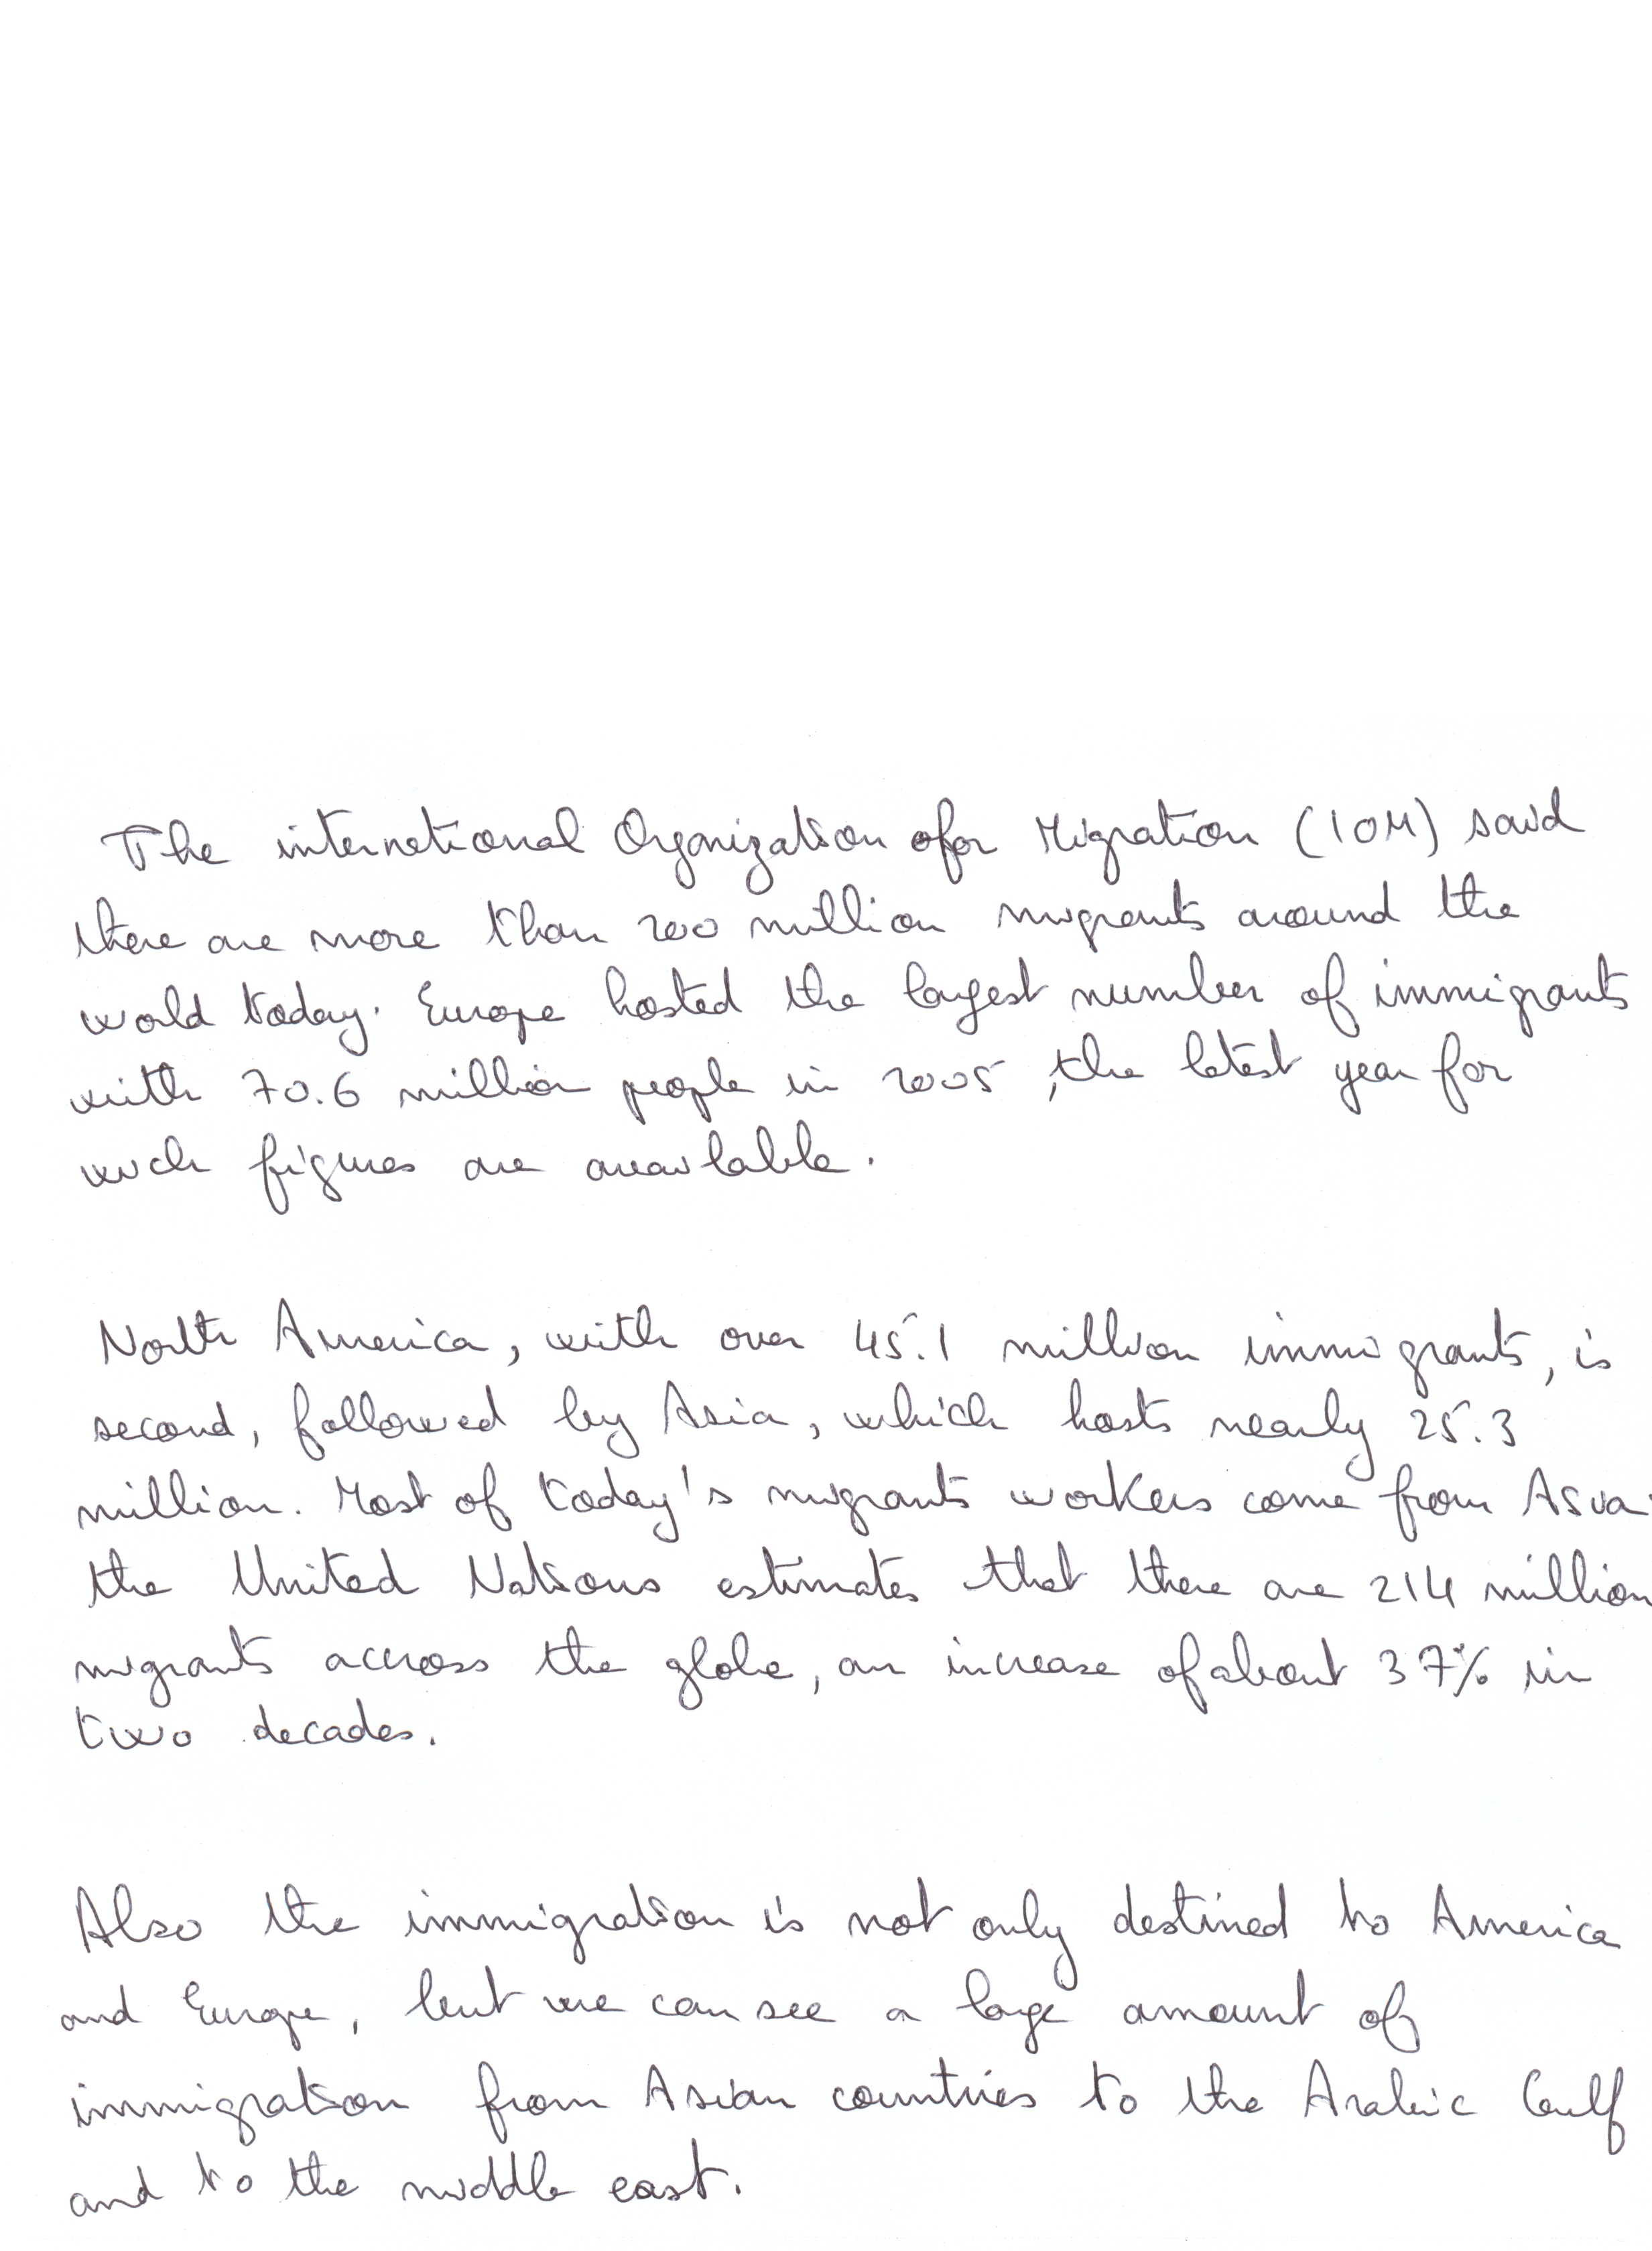 The international Organization ofor Migration (IOM) said
there are more than 200 million migrants around the
world today. Europe hosted the largest number of immigrants
with 70.6 million people in 2005, the latest year for
wich figures are available.
North America, with over 45.1 million immigrants, is
second, followed by Asia, which hosts nearly 25.3
million. Most of today's migrants workers come from Asia.
the United Nations estimates that there are 214 million
migrants accross the globe, an increase of about 37% in
two decades.
Also the immigration is not only destined to America
and Europe, but we can see a large amount of
immigration from Asian countries to the Arabic Gulf
and to the middle east.